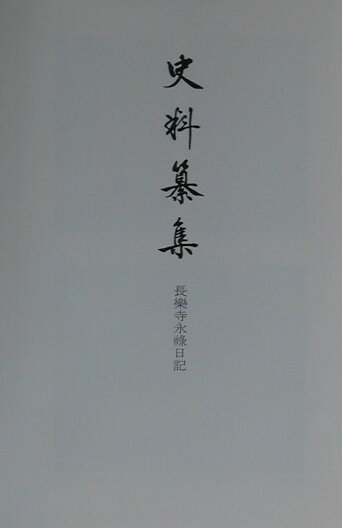 史料纂集
長樂寺永祿日記